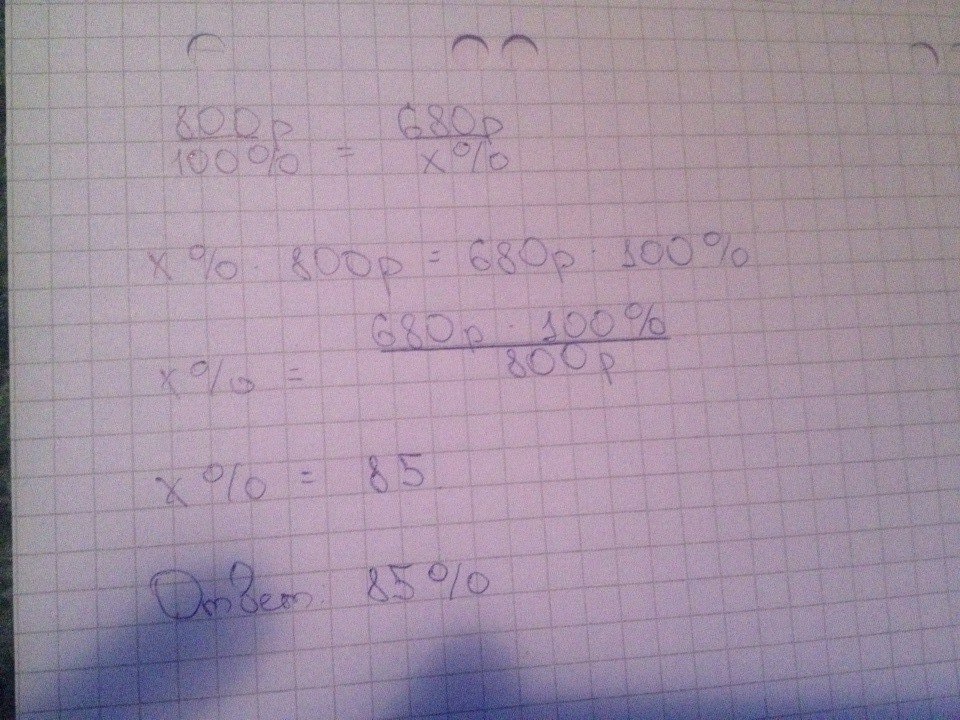 800р = 680р
100% x%
x% · 800р = 680р · 100%
x% = 680р · 100%
800р
x% = 85
Ответ. 85%